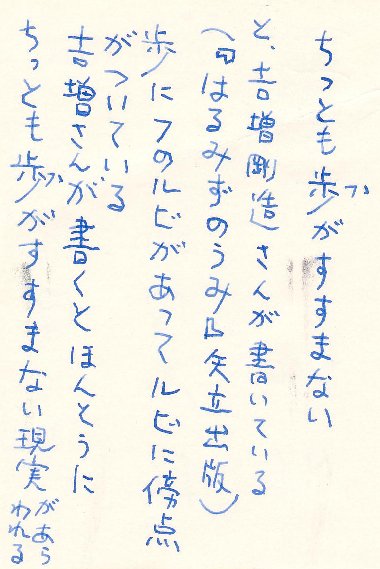 ちっとも歩フがすすまない
と、吉増剛造さんが書いている
(『はるみずのうみ』矢立出版)
歩にフのルビがあってルビに傍点
がついている
吉増さんが書くとほんとうに
ちっとも歩フがすすまない現実があらわれる